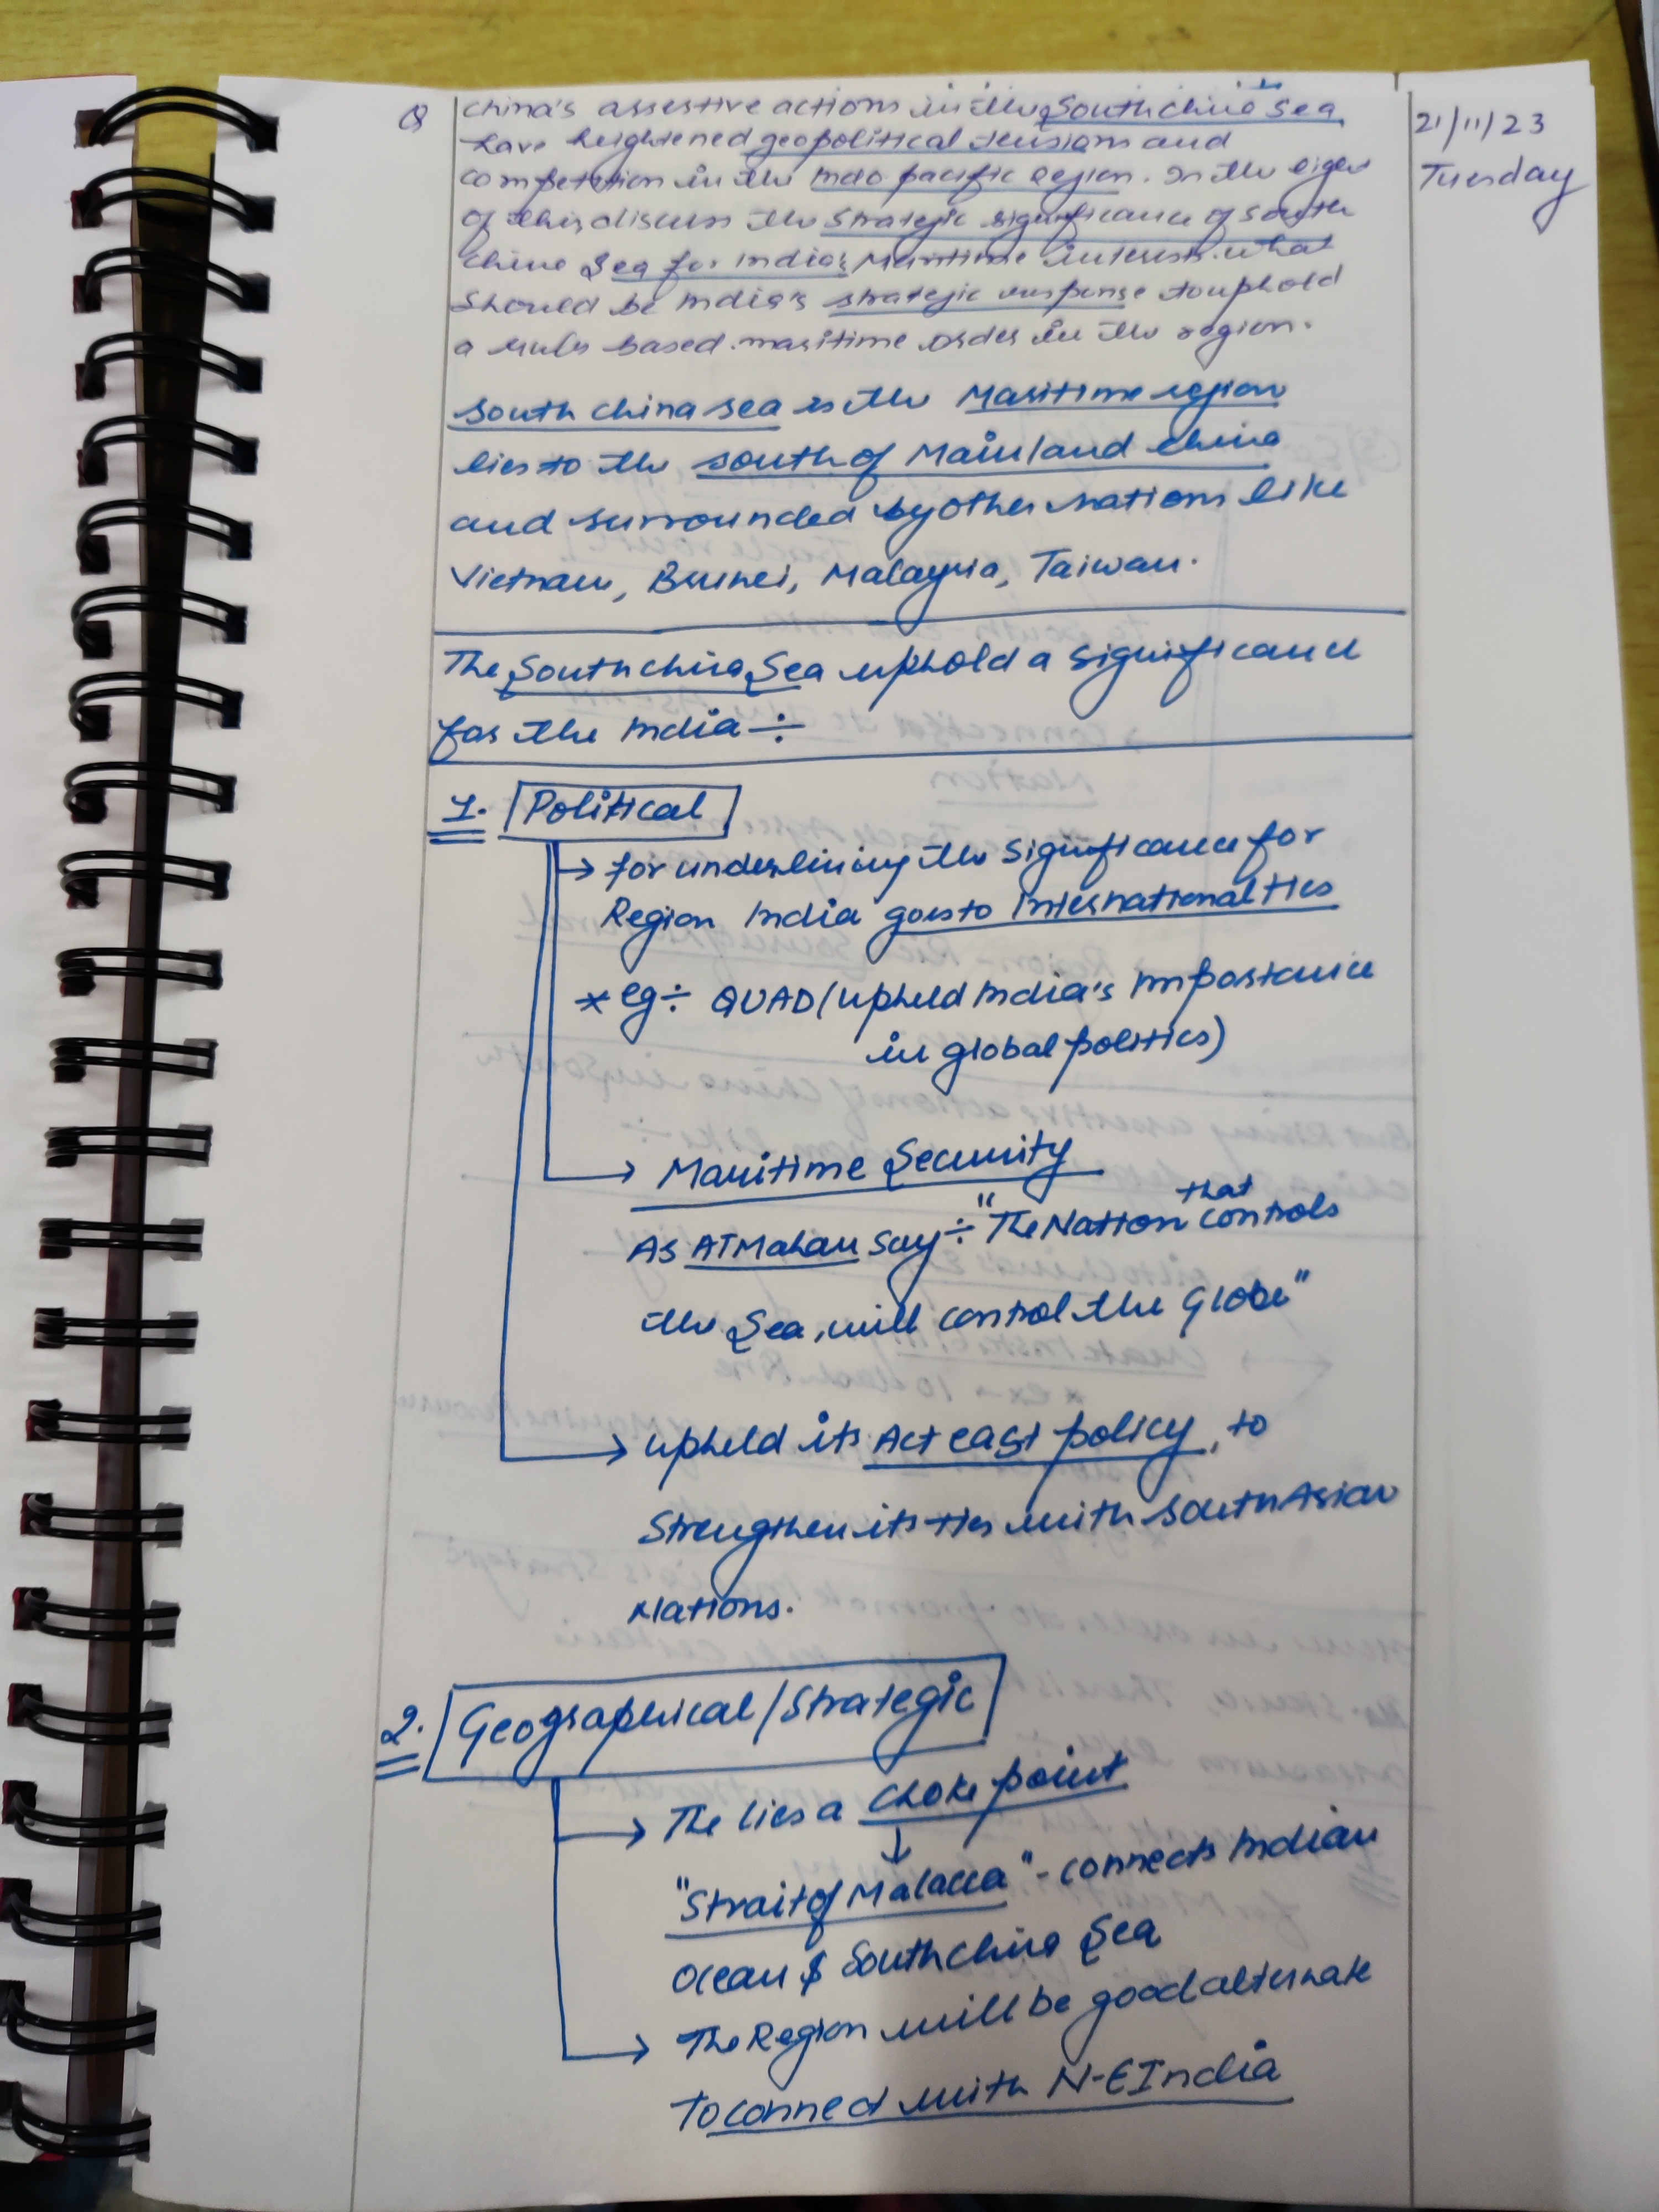 21/11/23
Tuesday
Q China's assertive actions in the South China Sea
have heightened geopolitical tensions and
competition in the Indo pacific Region. In the light
of this, discuss the strategic significance of South
China Sea for India's Maritime interests. what
should be India's strategic response to uphold
a rules based maritime order in the region.
South China Sea is the Maritime region
lies to the south of Mainland China
and surrounded by other nations like
Vietnam, Brunei, Malaysia, Taiwan.
The South China Sea uphold a significance
for the India ÷
1. Political
→ for underlining the significance for
Region India goes to International ties
* eg ÷ QUAD (upheld India's importance
in global politics)
→ Maritime Security
As AT Mahan say ÷ "The Nation that controls
the Sea, will control the Globe"
→ upheld its Act east policy, to
strengthen its ties with South Asian
Nations.
2. Geographical/Strategic
→ The lies a choke point
↓
"Strait of Malacca" - connects Indian
Ocean & South China Sea
→ The Region will be good alternate
To connect with N-E India